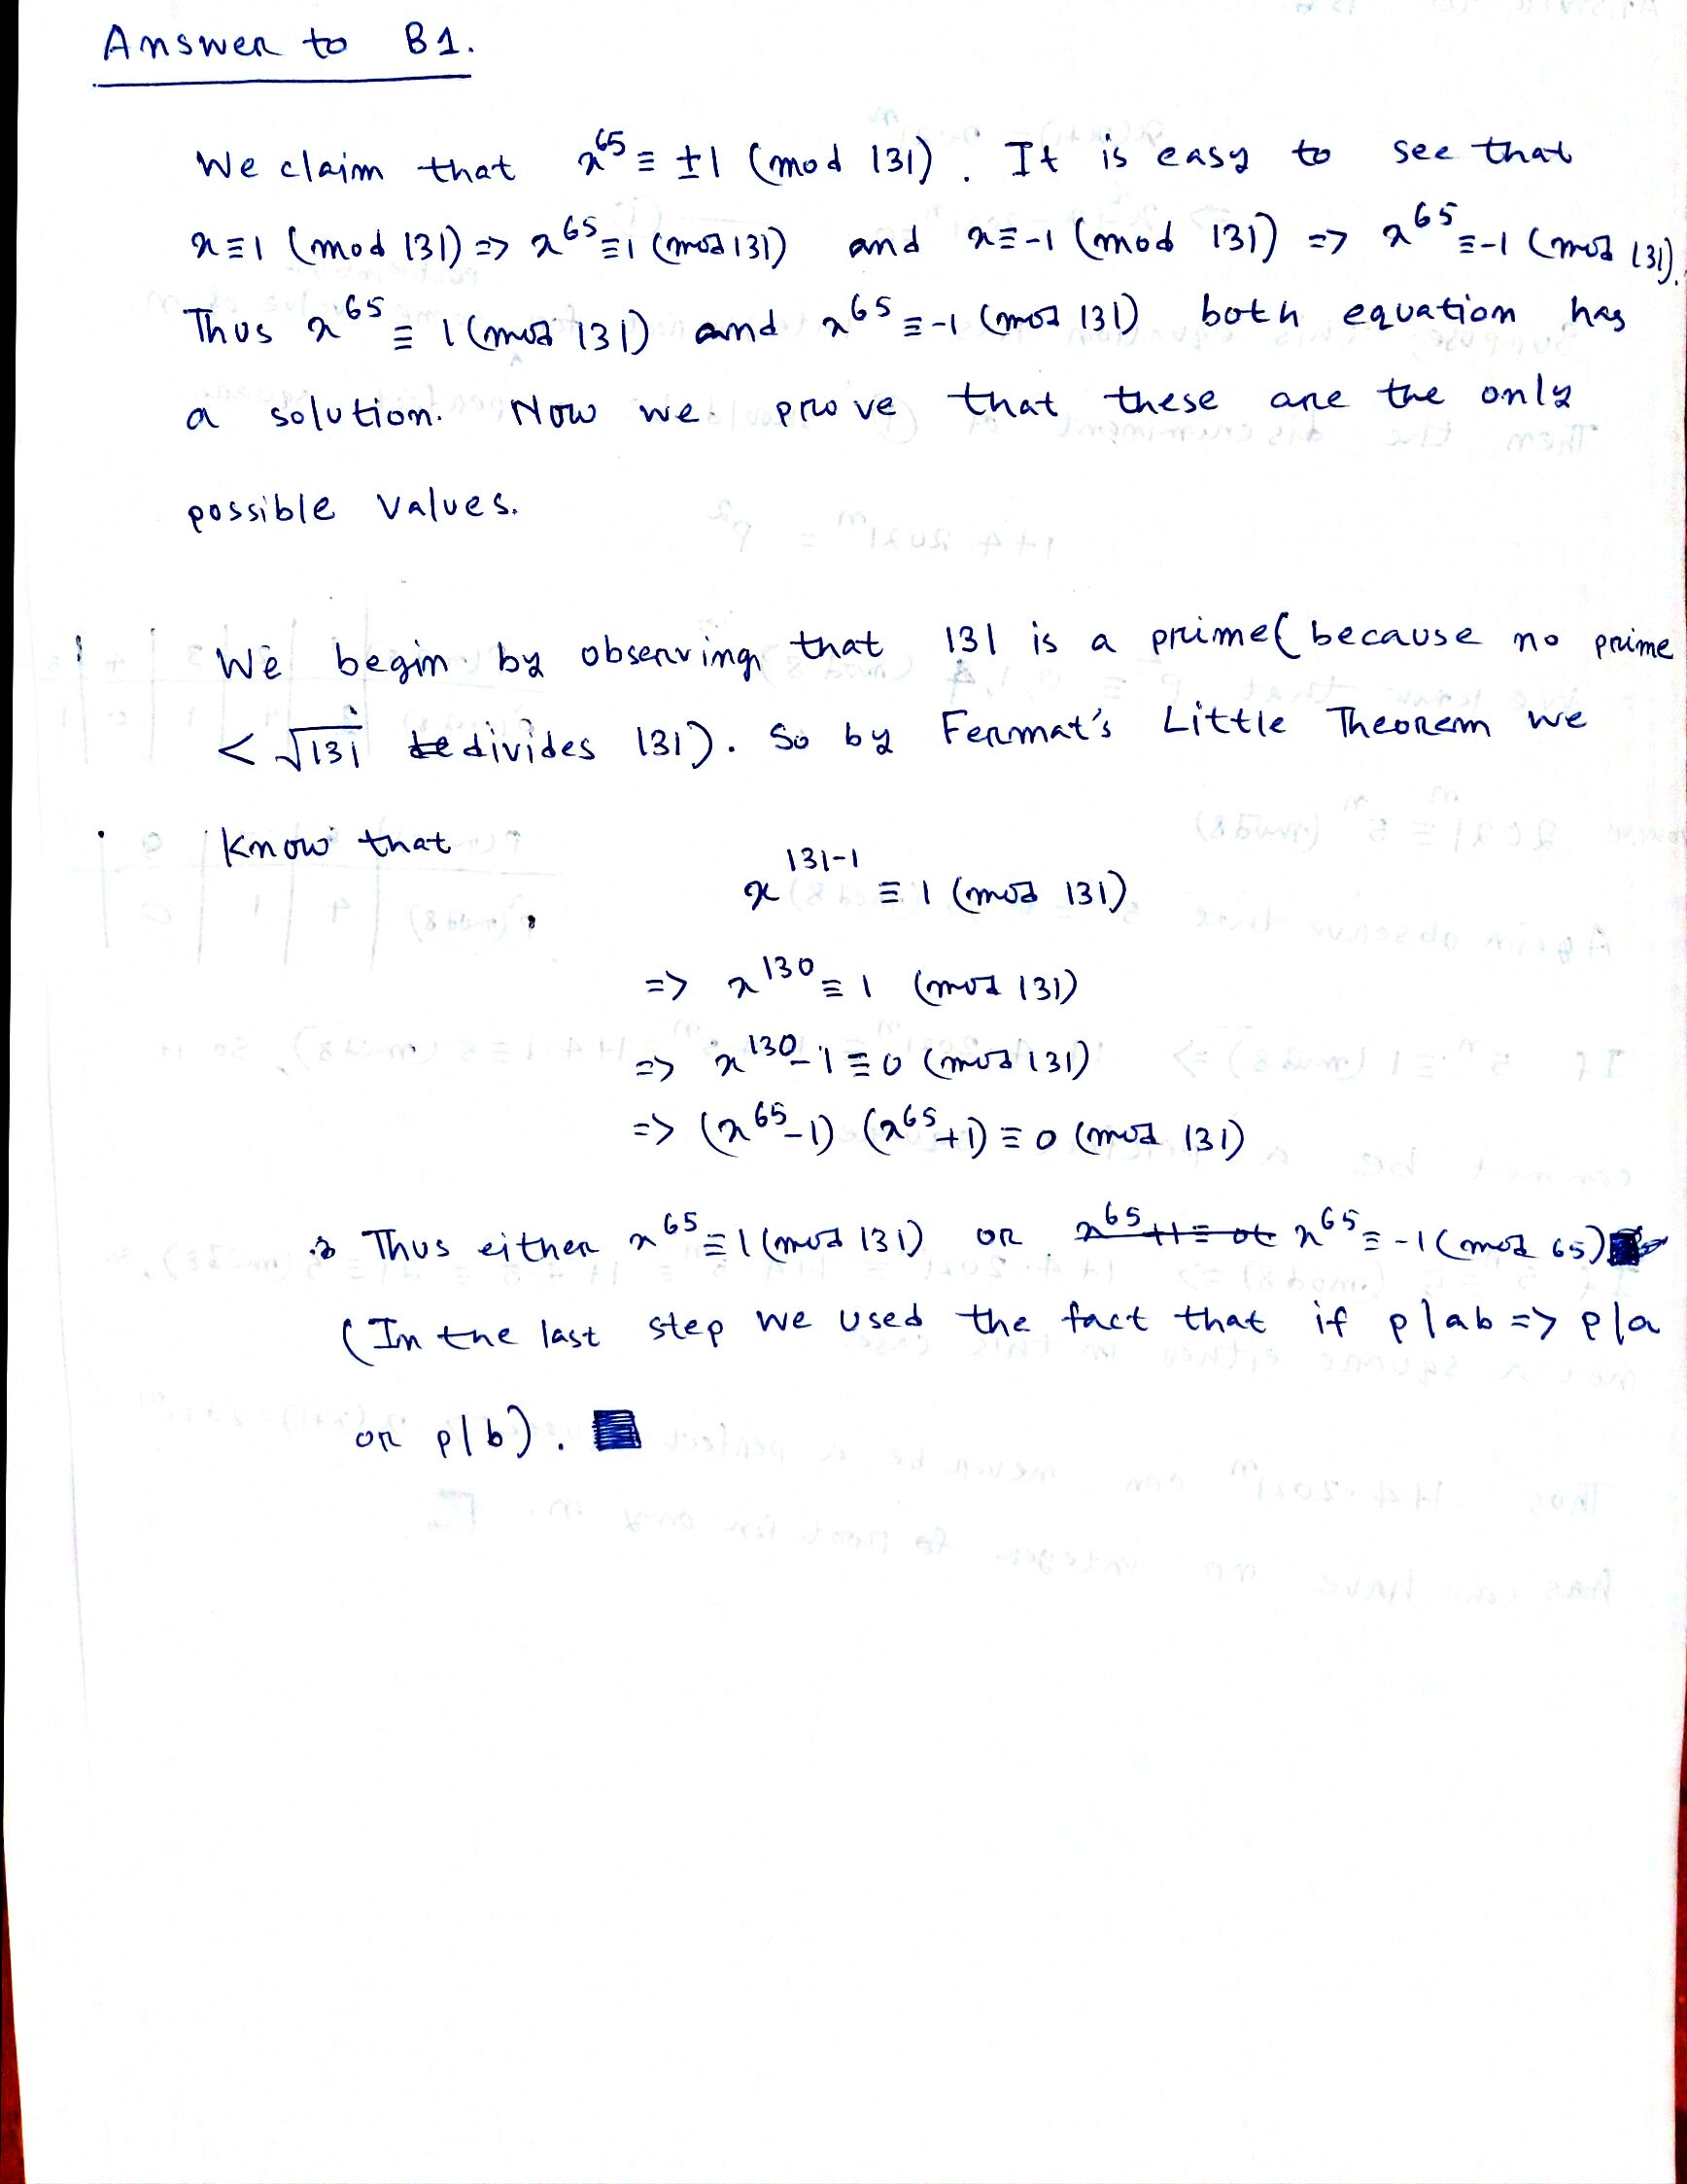 Answer to B1.
We claim that x^65 ≡ ±1 (mod 131). It is easy to see that
x≡1 (mod 131) => x^65≡1 (mod 131) and x≡-1 (mod 131) => x^65≡-1 (mod 131).
Thus x^65 ≡ 1 (mod 131) and x^65≡-1 (mod 131) both equation has
a solution. Now we prove that these are the only
possible values.
We begin by observing that 131 is a prime (because no prime
< √131 divides 131). So by Fermat's Little Theorem we
know that
x^(131-1) ≡ 1 (mod 131)
=> x^130 ≡ 1 (mod 131)
=> x^130-1≡0 (mod 131)
=> (x^65-1) (x^65+1)≡0 (mod 131)
Thus either x^65≡1 (mod 131) or x^65≡-1 (mod 65)
(In the last step we used the fact that if p|ab => p|a
or p|b).